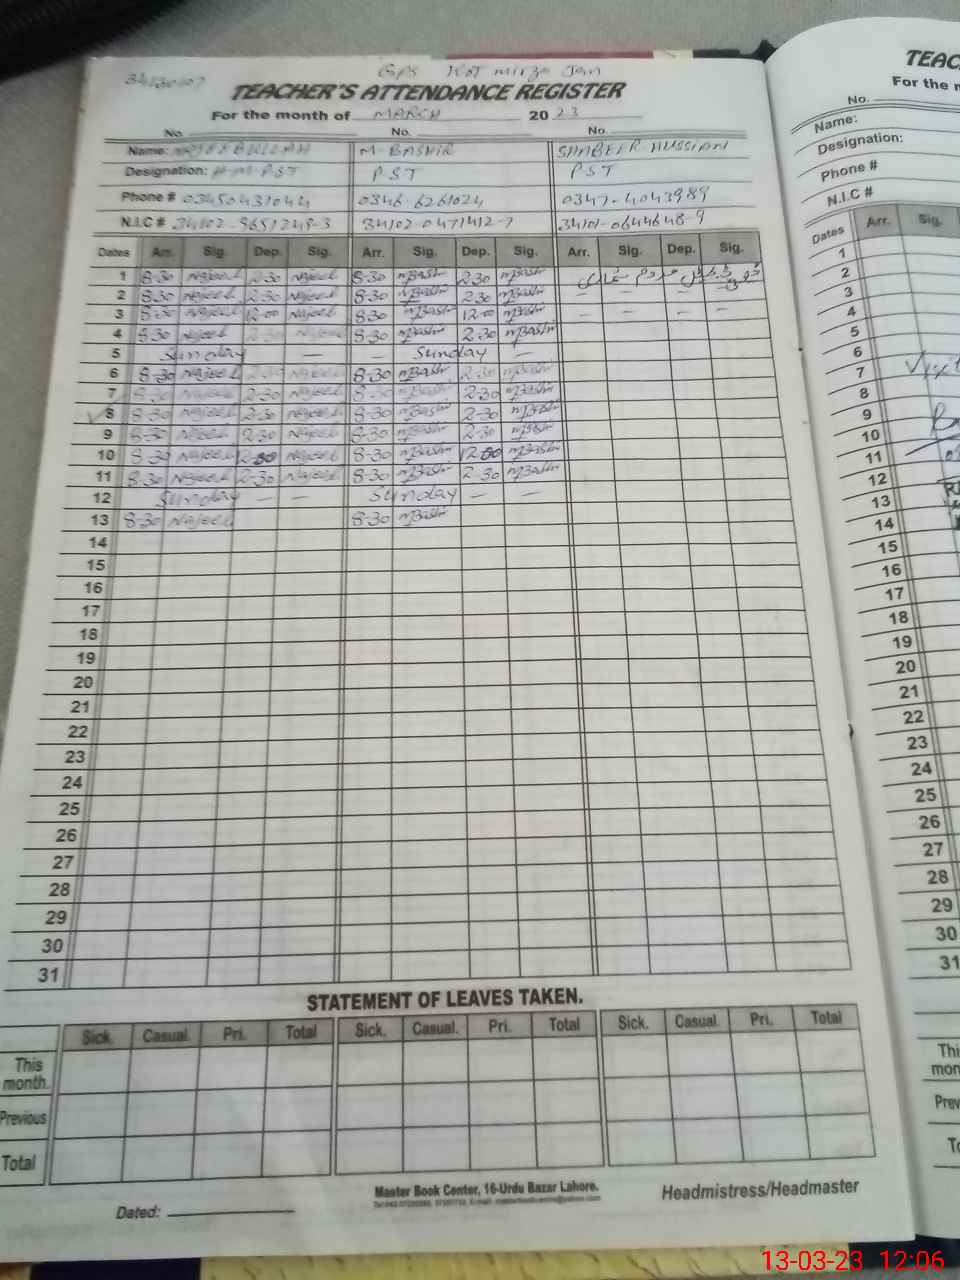 34130107
GPS Kot mirza Jan
TEACHER'S ATTENDANCE REGISTER
For the month of MARCH 2023
No. No. No.
Name: NAJEEBULLAH M-BASHIR SHABEER-HUSSIAN
Designation: H-M-PST PST PST
Phone # 03450431044 0346-6261024 0347-4043989
N.I.C # 34102-9651248-3 34102-0471412-7 34101-0644648-9
Dates Arr. Sig. Dep. Sig. Arr. Sig. Dep. Sig. Arr. Sig. Dep. Sig.
1 8-30 Najeeb 2-30 Najeeb 8-30 mBashir 2-30 mBashir
2 8-30 Najeeb 2-30 Najeeb 8-30 mBashir 2-30 mBashir - - - -
3 8-30 Najeeb 12-00 Najeeb 8-30 mBashir 12-00 mBashir - - - -
4 8-30 Najeeb 2-30 Najeeb 8-30 mBashir 2-30 mBashir
5 Sunday — - Sunday —
6 8-30 Najeeb 2-30 Najeeb 8-30 mBashir 2-30 mBashir
7 8-30 Najeeb 2-30 Najeeb 8-30 mBashir 2-30 mBashir
8 8-30 Najeeb 2-30 Najeeb 8-30 mBashir 2-30 mBashir
9 8-30 Najeeb 2-30 Najeeb 8-30 mBashir 2-30 mBashir
10 8-30 Najeeb 12-00 Najeeb 8-30 mBashir 12-00 mBashir
11 8-30 Najeeb 2-30 Najeeb 8-30 mBashir 2-30 mBashir
12 Sunday — — Sunday — —
13 8-30 Najeeb 8-30 mBashir
14
15
16
17
18
19
20
21
22
23
24
25
26
27
28
29
30
31
STATEMENT OF LEAVES TAKEN.
Sick. Casual. Pri. Total Sick. Casual. Pri. Total Sick. Casual Pri. Total
This month.
Previous
Total
Master Book Center, 16-Urdu Bazar Lahore.
Dated: Headmistress/Headmaster
TEAC
For the m
No.
Name:
Designation:
Phone #
N.I.C #
Dates Arr. Sig.
1
2
3
4
5
6
7
8
9
10
11
12
13
14
15
16
17
18
19
20
21
22
23
24
25
26
27
28
29
30
31
Thi
mon
Prev
To
13-03-23 12:06